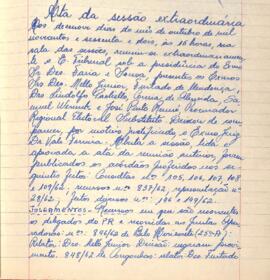 Ata da sessão extraordinária
Aos dezenove dias do mês de outubro de mil
novecentos e sessenta e dois, às 16 horas, na
sala das sessões, reuniu-se extraordinariamen-
te o E. Tribunal sob a presidência do Exmo
Sr. Des. Faria e Sousa, presentes os Exmos
Srs. Des. Mello Junior, Edgard de
Drs. Lindolfo de Almeida,
Werneck e José Procurador
Regional Eleitoral Substituto. Deixou de com-
parecer, por motivo justificado, o Exmo. Sr.
Do Vale Ferreira. Aberta a sessão, lida e
aprovada a ata da reunião anterior, foram
publicados os acórdãos proferidos nos se-
guintes feitos: Consultas nº 105, 106, 107, 108
e 109/62, recursos nº 837/62, representação nº
28/62. Feitos diversos nº: 106 e 109/62.
JULGAMENTOS - Recursos em que são recorrente
o delegado do PR e recorrida as Juntas Apu-
radoras: nº: 846/62 de Belo Horizonte (25ª A):
Relator: Des. Mello Junior. Decisão: negaram provi-
mento. 848/62 de Congonhas: relator: Des. Furtado